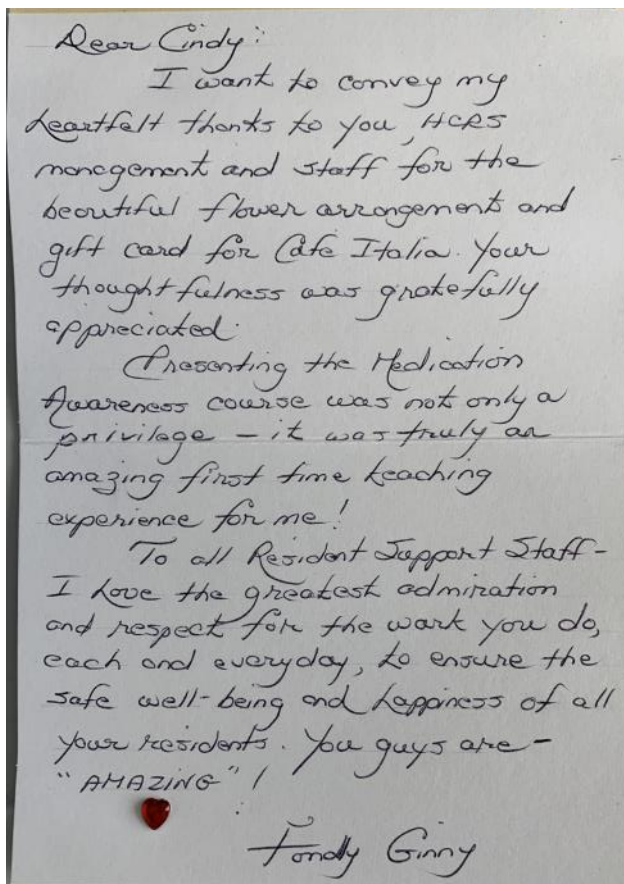 Dear Cindy:
I want to convey my
heartfelt thanks to you, HCRS
management and staff for the
beautiful flower arrangement and
gift card for Cafe Italia. Your
thoughtfulness was gratefully
appreciated.
Presenting the Medication
Awareness course was not only a
privilage – it was truly an
amazing first time teaching
experience for me!
To all Resident Support Staff –
I have the greatest admiration
and respect for the work you do,
each and everyday, to ensure the
safe well-being and happiness of all
your residents. You guys are –
"AMAZING"!
Fondly Ginny